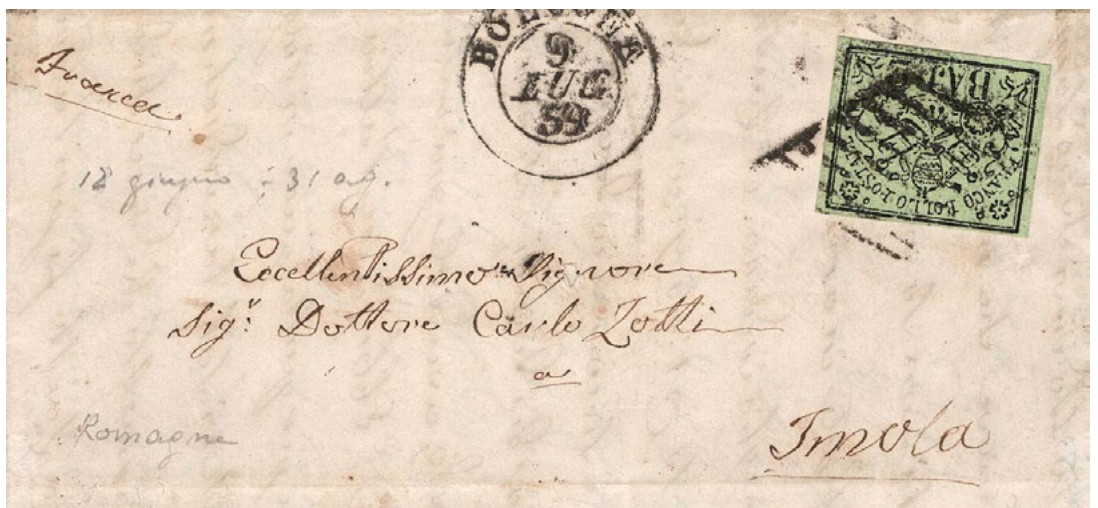 BOLOGNA
9
LUG
59
Franca
BAJ
FRANCO BOLLO POSTALE
12 giugno ÷ 31 ag.
Eccellentissimo Signore
Sig.r Dottore Carlo Zotti
a
Imola
Romagne